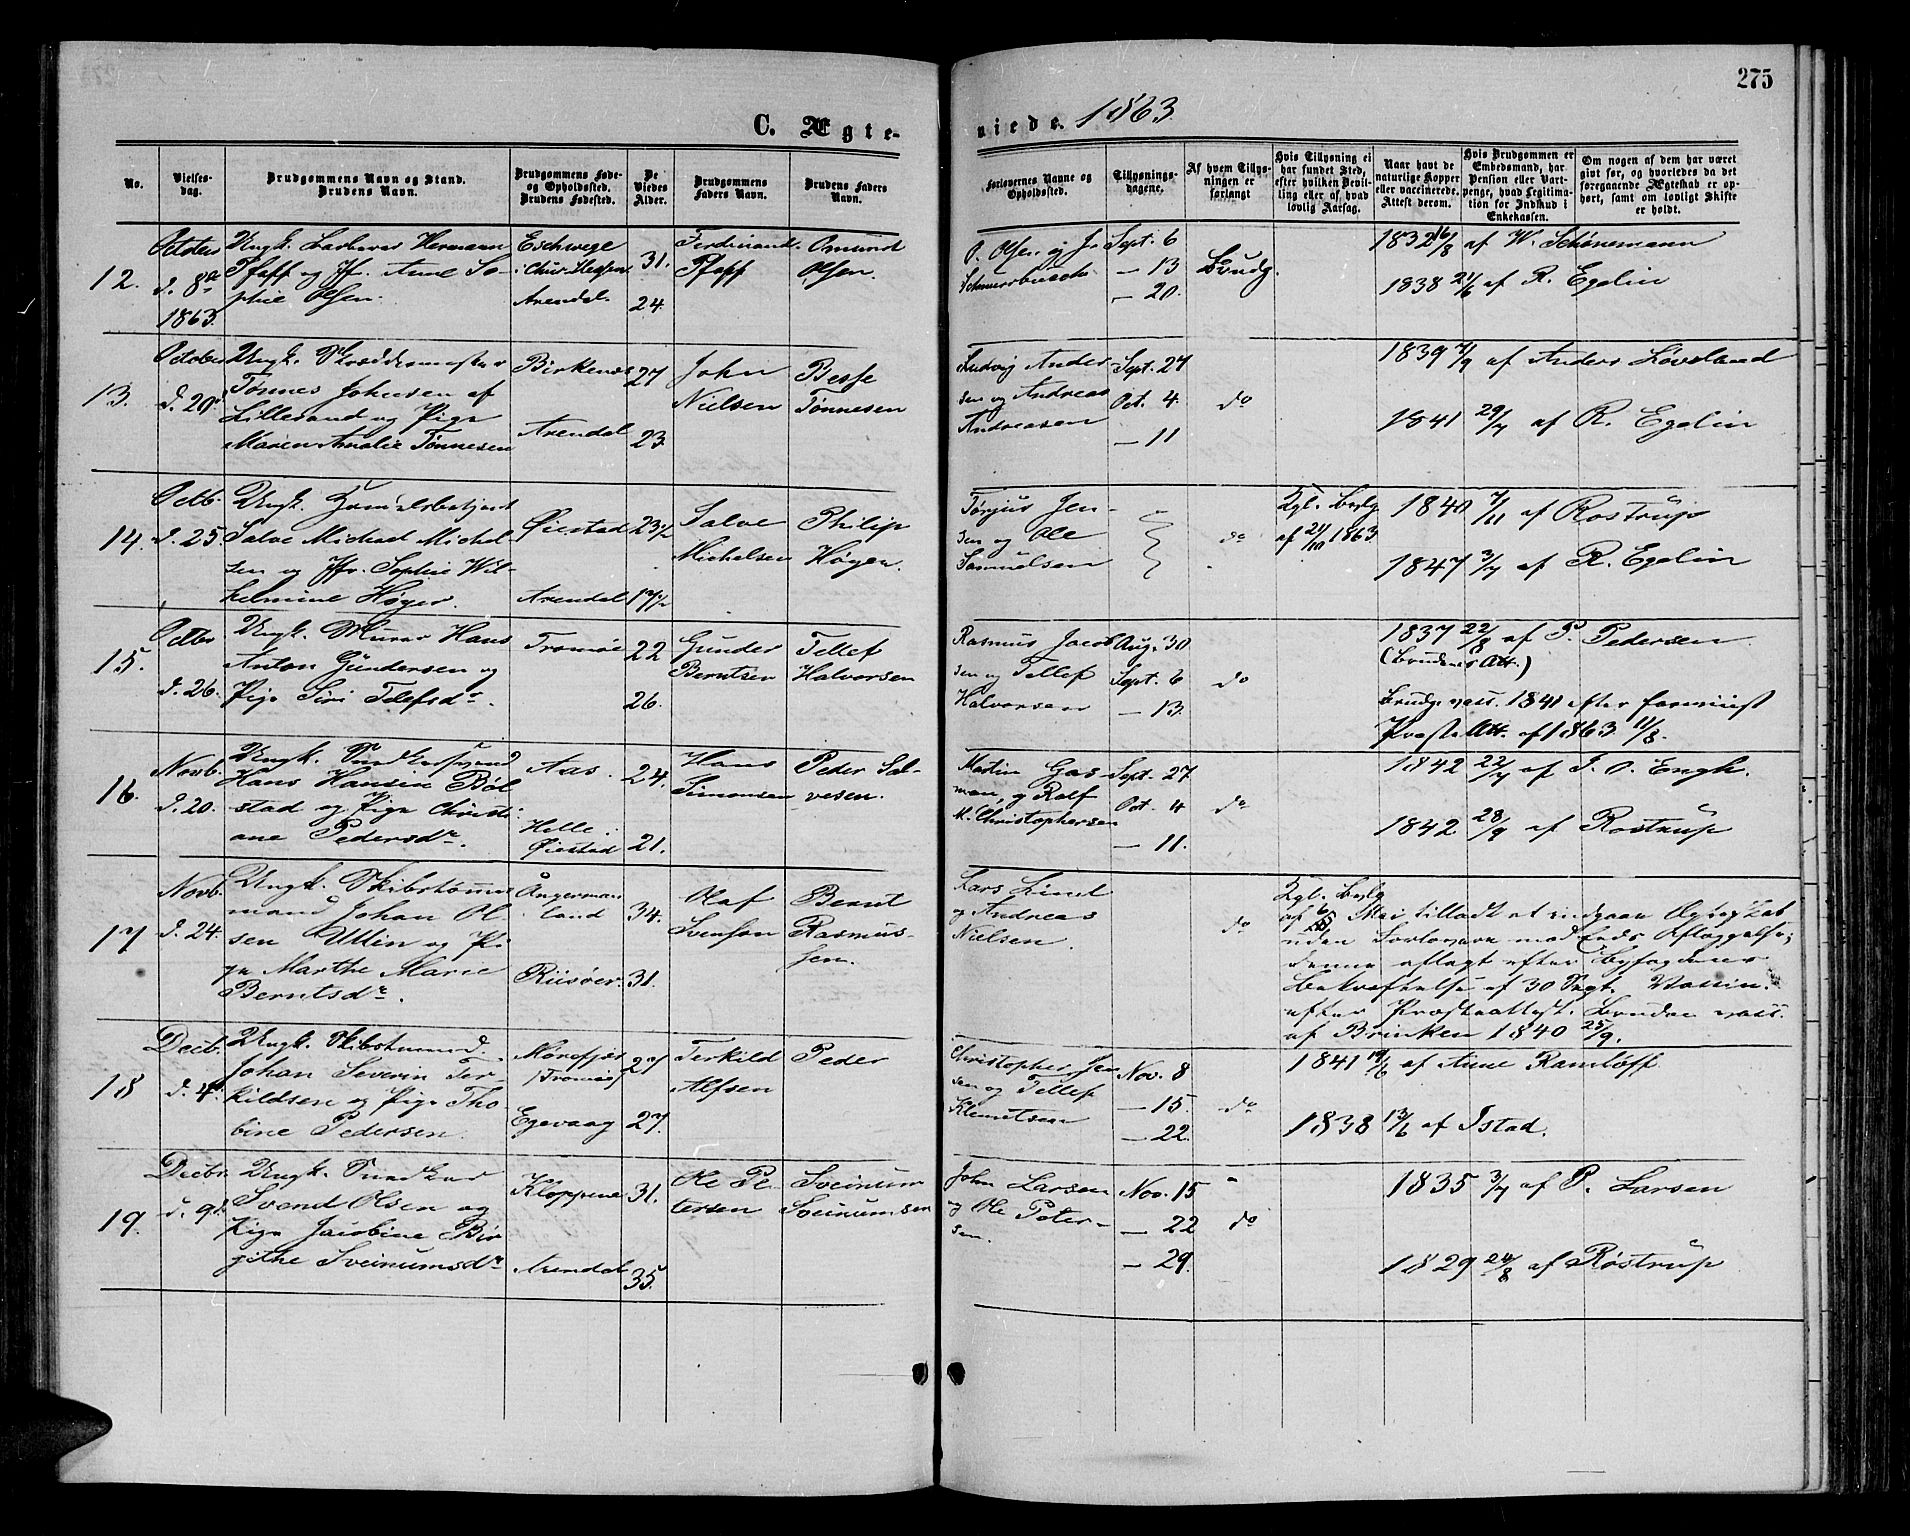 275
C. Ægte-
viede. 1863
No.
Vielses-
dag.
Brudgommens Navn og Stand.
Brudens Navn.
Brudgommens Føde-
og Opholdssted.
Brudens Fødested.
De
Viedes
Alder.
Brudgommens
Faders Navn.
Brudens Faders
Navn.
Forlovernes Navne og
Opholdssted.
Tillysnings-
dagene.
Af hvem Tillys-
ningen er
forlangt
Hvis Tillysning ei
har fundet Sted,
efter hvilken Bevil-
ling eller af hvad
lovlig Aarsag.
Naar havt de
naturlige Kopper
eller vaccinerede.
Attest derom.
Hvis Brudgommen er
Embedsmand, har
Pension eller Vart-
penge, hvad Legitima-
tion for Indskud i
Enkekassen.
Om nogen af dem har været
gift før, og hvorledes da det
foregaaende Ægteskab er op-
hørt, samt om lovligt Skifte
er holdt.
12.
October
d. 8de
1863.
Ungk. Barberer Hermann
Pfaff og Jfr. Anne So-
phie Olsen.
Eschwege
i Chur Hessen
Arendal.
31.
24.
Ferdinand
Pfaff
Omund
Olsen.
O. Olsen og J.
Sept. 6
— 13
— 20.
Brudg.
1832 16/8 af W. Schönemann
1838 21/6 af R. Egelin
13.
October
d. 20.
Ungk. Skræddermester
Tønnes Johnsen af
Lillesand og Pige
Maren Amalie Tønnesen
Birkenæs
Arendal
27
23.
John
Nielsen
Besse
Tønnesen
Ludvig Ander
sen og Andreas
Andreasen
Sept. 27
Oct. 4.
— 11
do
1839 7/9 af Anders Løvsland
1841 29/7 af R. Egelin
14.
Octb.
d. 25.
Ungk. Handelsbetjent
Salve Michael Michel
sen og Jfr. Sophie Wil-
helmine Høyer.
Øiestad
Arendal
23 1/2
17 1/2
Salve
Michelsen
Philip
Høyer.
Tønjus Jen-
sen og Ole
Samuelsen
do
Kgl. Bevlg
af 21/10 1863.
1840 7/11 af Rostrup
1847 3/7 af R. Egelin
15.
Octbr
d. 26.
Ungk. Murer Hans
Anton Gundersen og
Pige Siri Tellefsdr.
Tromøe
22
26.
Gunder
Berntsen
Tellef
Halvorsen
Rasmus Jacob
sen og Tellef
Halvorsen
Aug. 30
Sept. 6
— 13.
do
1837 22/8 af P. Pedersen
(Brudens Att.)
Brudg. vacc. 1841 efter foreviist
Præste Att. af 1863 11/8.
16.
Novb.
d. 20.
Ungk. Snedkersvend
Hans Hansen Bøl
stad og Pige Christi
ane Pedersdr.
Aas.
Helle i
Øiestad
24.
21.
Hans
Simonsen
Peder Sal-
vesen.
Martin Gas-
man, og Rolf
M. Christophersen
Sept. 27
Oct. 4
— 11.
do
1842 22/7 af J. O. Engh.
1842. 28/9 af Rostrup
17
Novb.
d. 24.
Ungk. Skibstømmer
mand Johan Ol
sen Ullin og Pi
ge Marthe Marie
Berntsdr.
Ångerman
land
Riisøer.
34.
31.
Olaf
Svenson
Bernt
Rasmus-
sen.
Lars Lind
og Andreas
Nielsen.
do
Kgl. Bevlg
af 6 Mai tilladt at indgaae Ægteskab
uden Forlovere mod Eeds Aflæggelse;
denne aflagt efter Byfogdens
Bekræftelse af 30 Sept. Vaccin.
efter Præsteattest. Bruden vacc.
af Brinken 1840 25/9.
18
Decb.
d. 4.
Ungk. Skibstømmermd.
Johan Severin Ter-
kildsen og Pige Tho
bine Pedersen.
Mørefjær
(Tromøe)
Egevaag
27
27.
Terkild
Alfsen
Peder
Christopher Jen
sen og Tellef
Klemetsen
Nov. 8
— 15.
— 22.
do
1841 19/6 af Anne Ramløff
1838 13/6 af Istad.
19.
Decbr.
d. 9d.
Ungk. Snedker
Svend Olsen og
Pige Jacobine Bir
githe Sveinumsdr
Kloppene
Arendal
31.
35.
Ole Pe
tersen
Sveinum
Sveinumsen
John Larsen
og Ole Peter-
sen.
Nov. 15
— 22
— 29.
"
do
1835 3/7 af P. Larsen
1829 24/8 af Røstrup